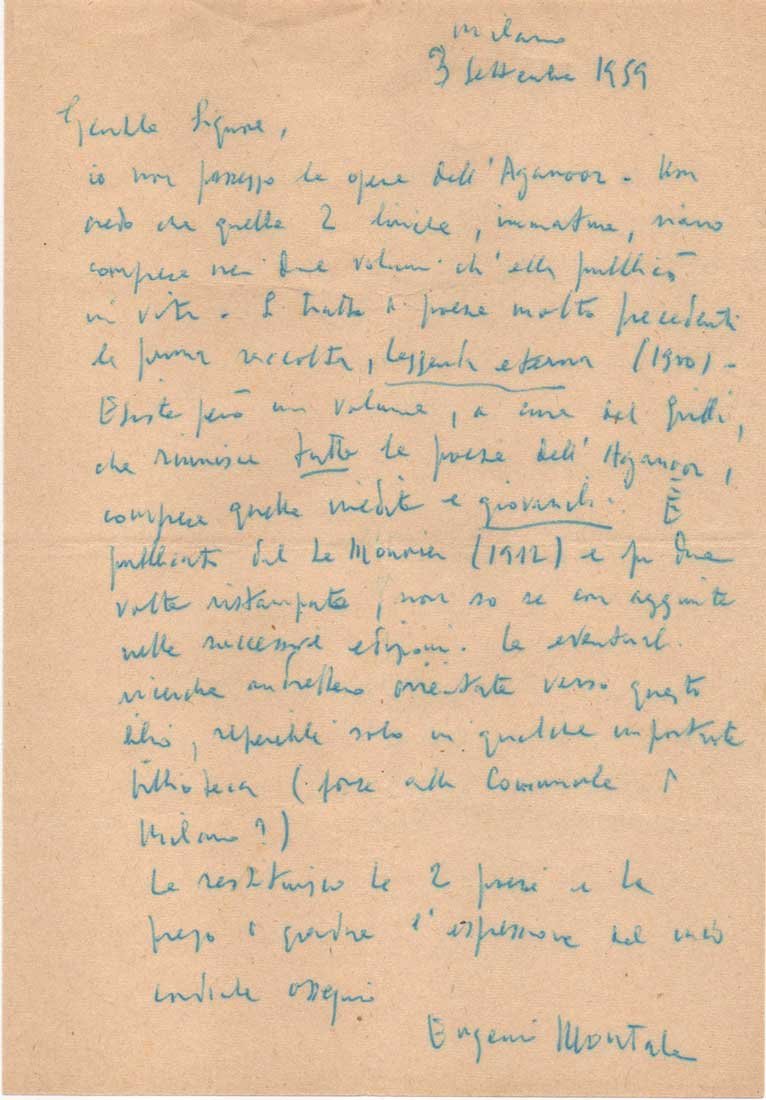 Milano
3 settembre 1959
Gentile Signore,
io non posseggo le opere dell'Aganoor. Non
credo che quelle 2 liriche, immature, siano
comprese nei due volumi ch'ella pubblicò
in vita. Si tratta di poesie molto precedenti
la prima raccolta, Leggenda eterna (1900).
Esiste però un volume, a cura del Grilli,
che riunisce tutte le poesie dell'Aganoor,
comprese quelle inedite e giovanili. È
pubblicato dal Le Monnier (1912) e fu due
volte ristampato, non so se con aggiunte
nelle successive edizioni. Le eventuali
ricerche andrebbero orientate verso questo
libro, reperibile solo in qualche importante
biblioteca (forse alla Comunale di
Milano?)
Le restituisco le 2 poesie e la
prego di gradire l'espressione del mio
cordiale ossequio
Eugenio Montale